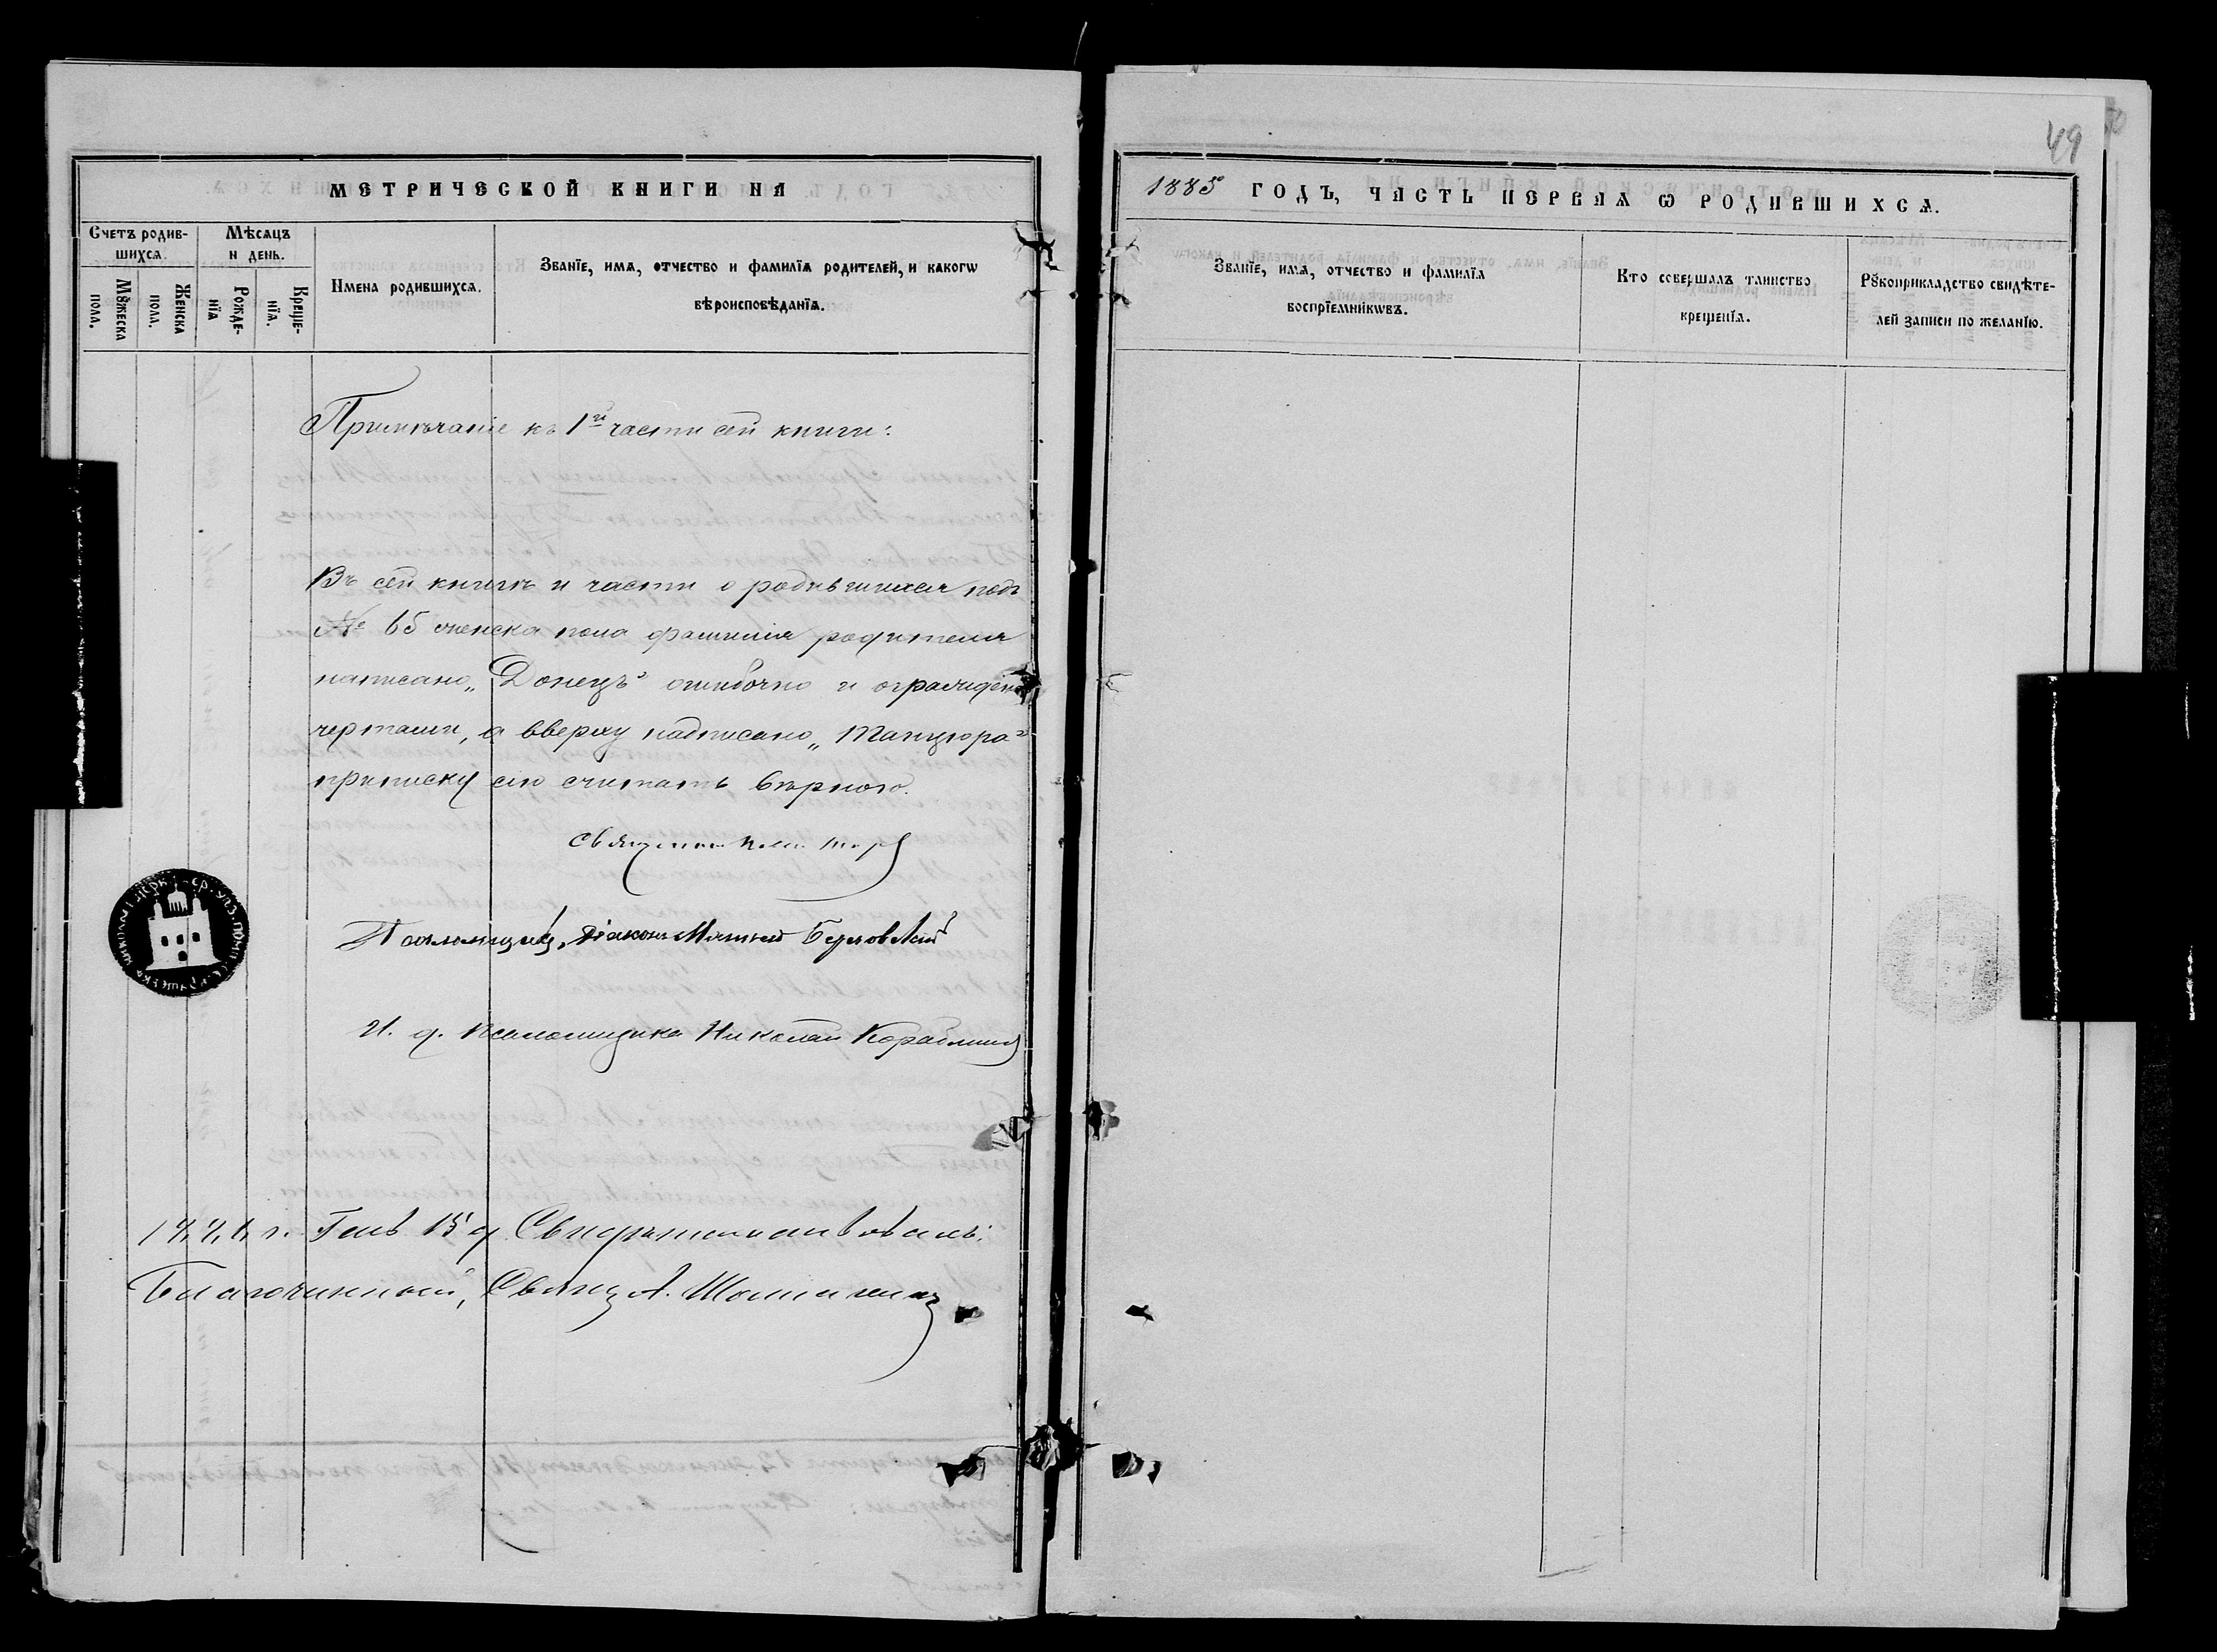 49
МЕТРИЧЕСКОЙ КНИГИ НА
1885 ГОДЪ, ЧАСТЬ ПЕРВАѦ Ѡ РОДИВШИХСѦ.
Счетъ родив-
шихсѧ.
Мꙋжеска
пола.
Женска
пола.
Мѣсѧцъ
и день.
Рожде-
нїѧ
Креще-
нїѧ.
Имена родившихсѧ.
Званїе, имѧ, отчество и фамилїѧ родителей, и какогѡ
вѣроисповѣданїѧ.
Званїе, имѧ, отчество и фамилїѧ
воспрїемникѡвъ.
Кто совершалъ таинство
крещенїѧ.
Рꙋкоприкладство свидѣте-
лей записи по желанїю.
Примѣчаніе къ 1й части сей книги:
Въ сей книгѣ и части о родившихся подъ
№ 65 женска пола фамилія родителя
написано „Донецъ“ ошибочно и ограждено
чертами, а вверху надписано „Танцюра“
приписку сію считать вѣрною.
Священникъ
Псаломщикъ, Діаконъ Матѳей
И. д. псаломщика Николай
1886 г. Генв. 15 д. Свидѣтельствовалъ:
Благочинный, Священ. А.